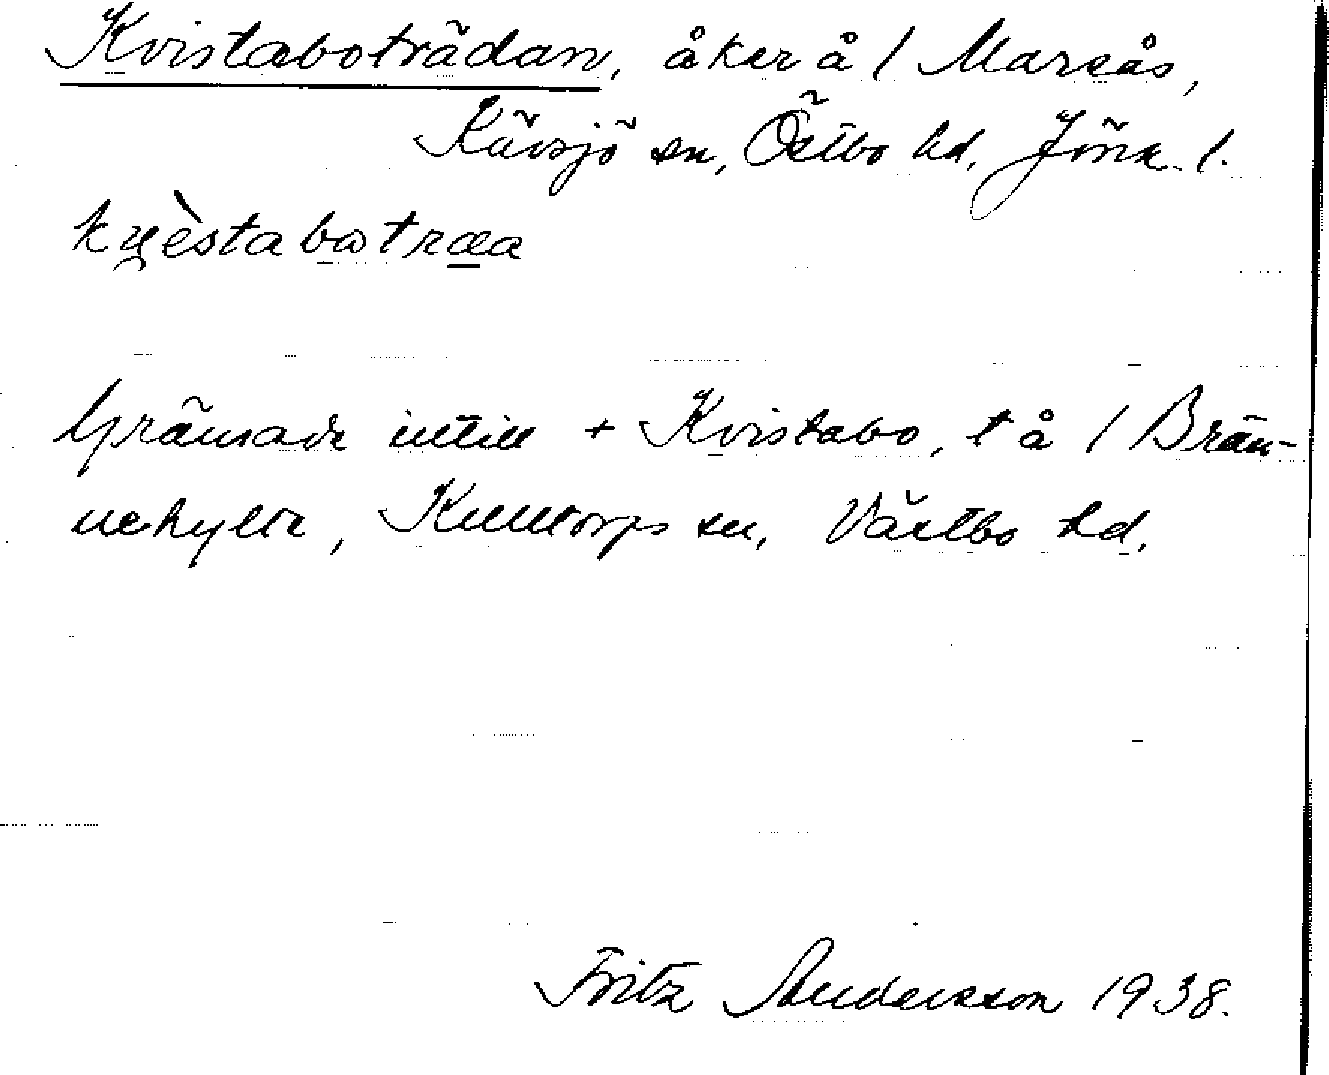 Kvistaboträdan, åker å / Marsås,
Kävsjö sn, Östbo hd, Jönk. l.
kṷèstabωtræa
Gränsade intill + Kvistabo, t å / Brän-
nehylte, Kulltorps sn, Västbo hd.
Fritz Andersson 1938.